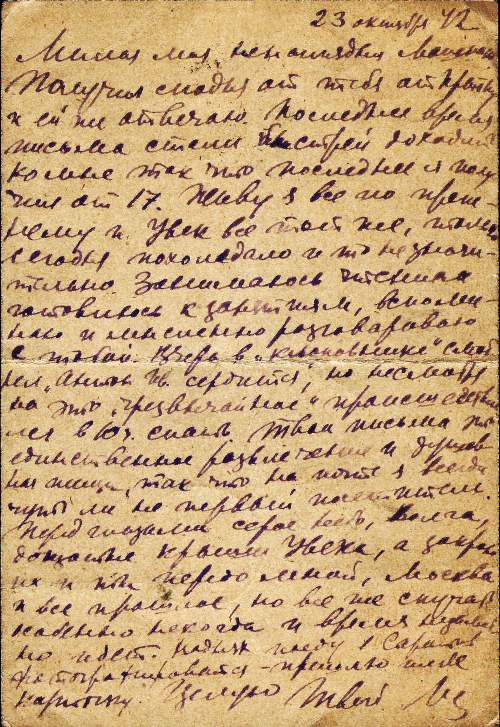 23 октября 42
Милая моя ненаглядная
Получил сегодня от тебя открытку
и ей же отвечаю. Последнее время
письма стали быстрей доходить
ко мне так что последнее я полу
чил от 17. Живу я все по преж-
нему и Увек все тот же, только
сегодня похолодало и то незначи-
тельно Занимаюсь чтением
готовлюсь к занятиям, вспоми-
наю и мысленно разговариваю
с тобой. Вчера в смот
рел „Антон Ив. сердится", но несмотря
на это „чрезвычайное" происшествие
лег в 10ч. спать Твои письма это
единственное развлечение и духов
ная пища, так что на почте я всегда
чуть ли не первый посетитель.
Перед глазами серое небо, Волга,
дощатые крыши Увека, а закрою
их и ты передо мной, Москва
и все прошлое, но все же скучать
особенно некогда и время
но идет. На днях поеду в Саратов
фотографироваться - пришлю тебе
карточку. Целую Твой